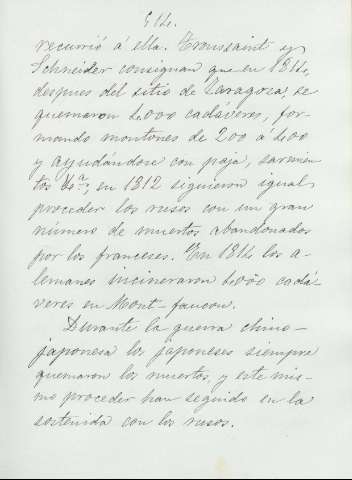 recurrió á ella. Troussaint y
Schneider consignan que en 1814,
despues del sitio de Zaragoza, se
quemaron 4.000 cadáveres, for-
mando montones de 200 á 400
y ayudándose con paja, sarmien-
tos &ª; en 1812 siguieron igual
proceder los rusos con un gran
número de muertos abandonados
por los franceses. En 1814 los a-
lemanes incineraron 4.000 cadá-
veres en Mont-faucon.
Durante la guerra chino-
japonesa los japoneses siempre
quemaron los muertos, y este mis-
mo proceder han seguido en la
sostenida con los rusos.